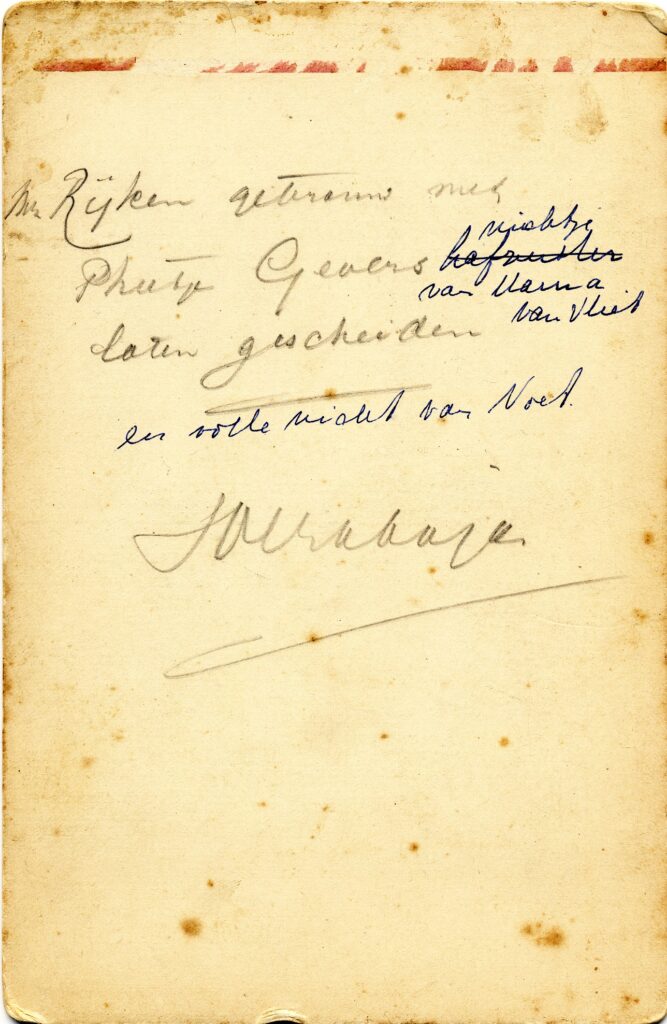 Mr Rijken getrouwd met
Phietje Gevers nichtje
van Mama
van Vliet
laten gescheiden
en volle nicht van Noet.
Soerabaja